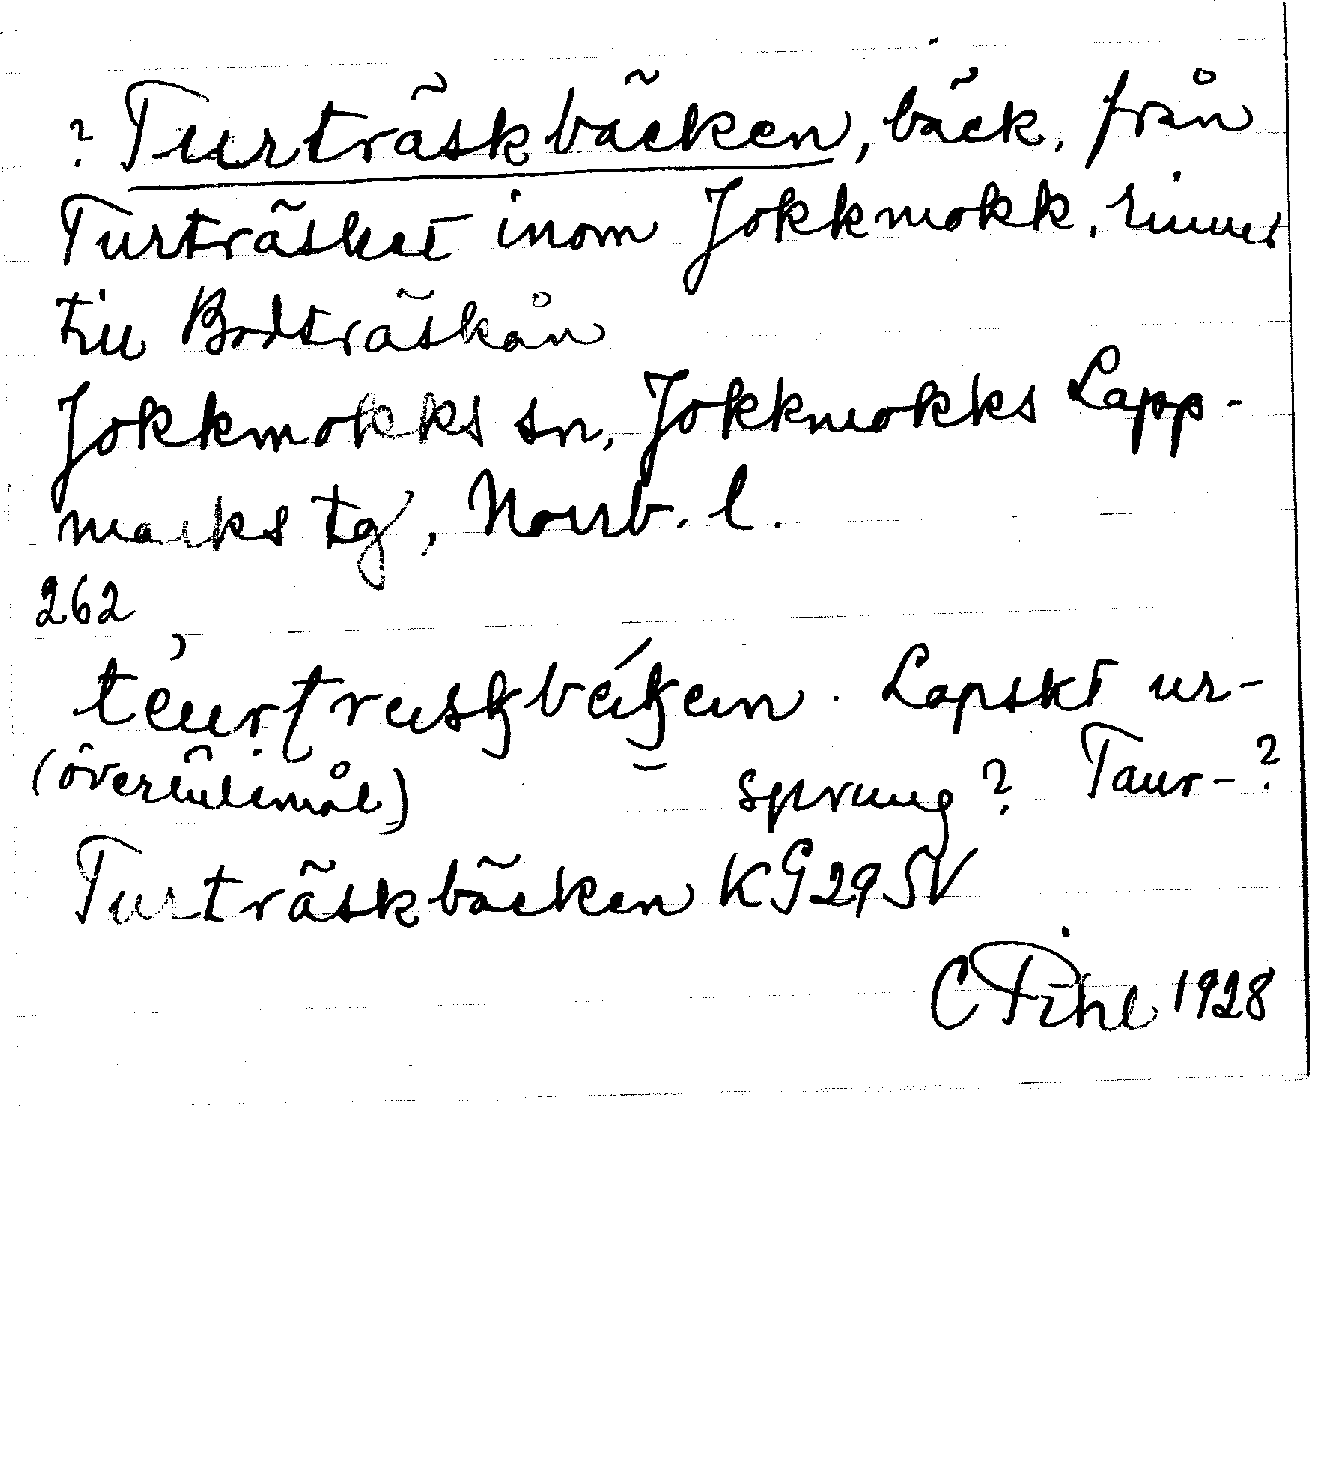 ? Turträskbäcken, bäck, från
Turträsket inom Jokkmokk, rinner
till Bodträskån
Jokkmokks sn, Jokkmokks Lapp-
marks tg, Norrb. l.
262
Lapskt ur-
(överlulemål) sprung? Taur-?
Turträskbäcken KG29SV
C Pihl 1928